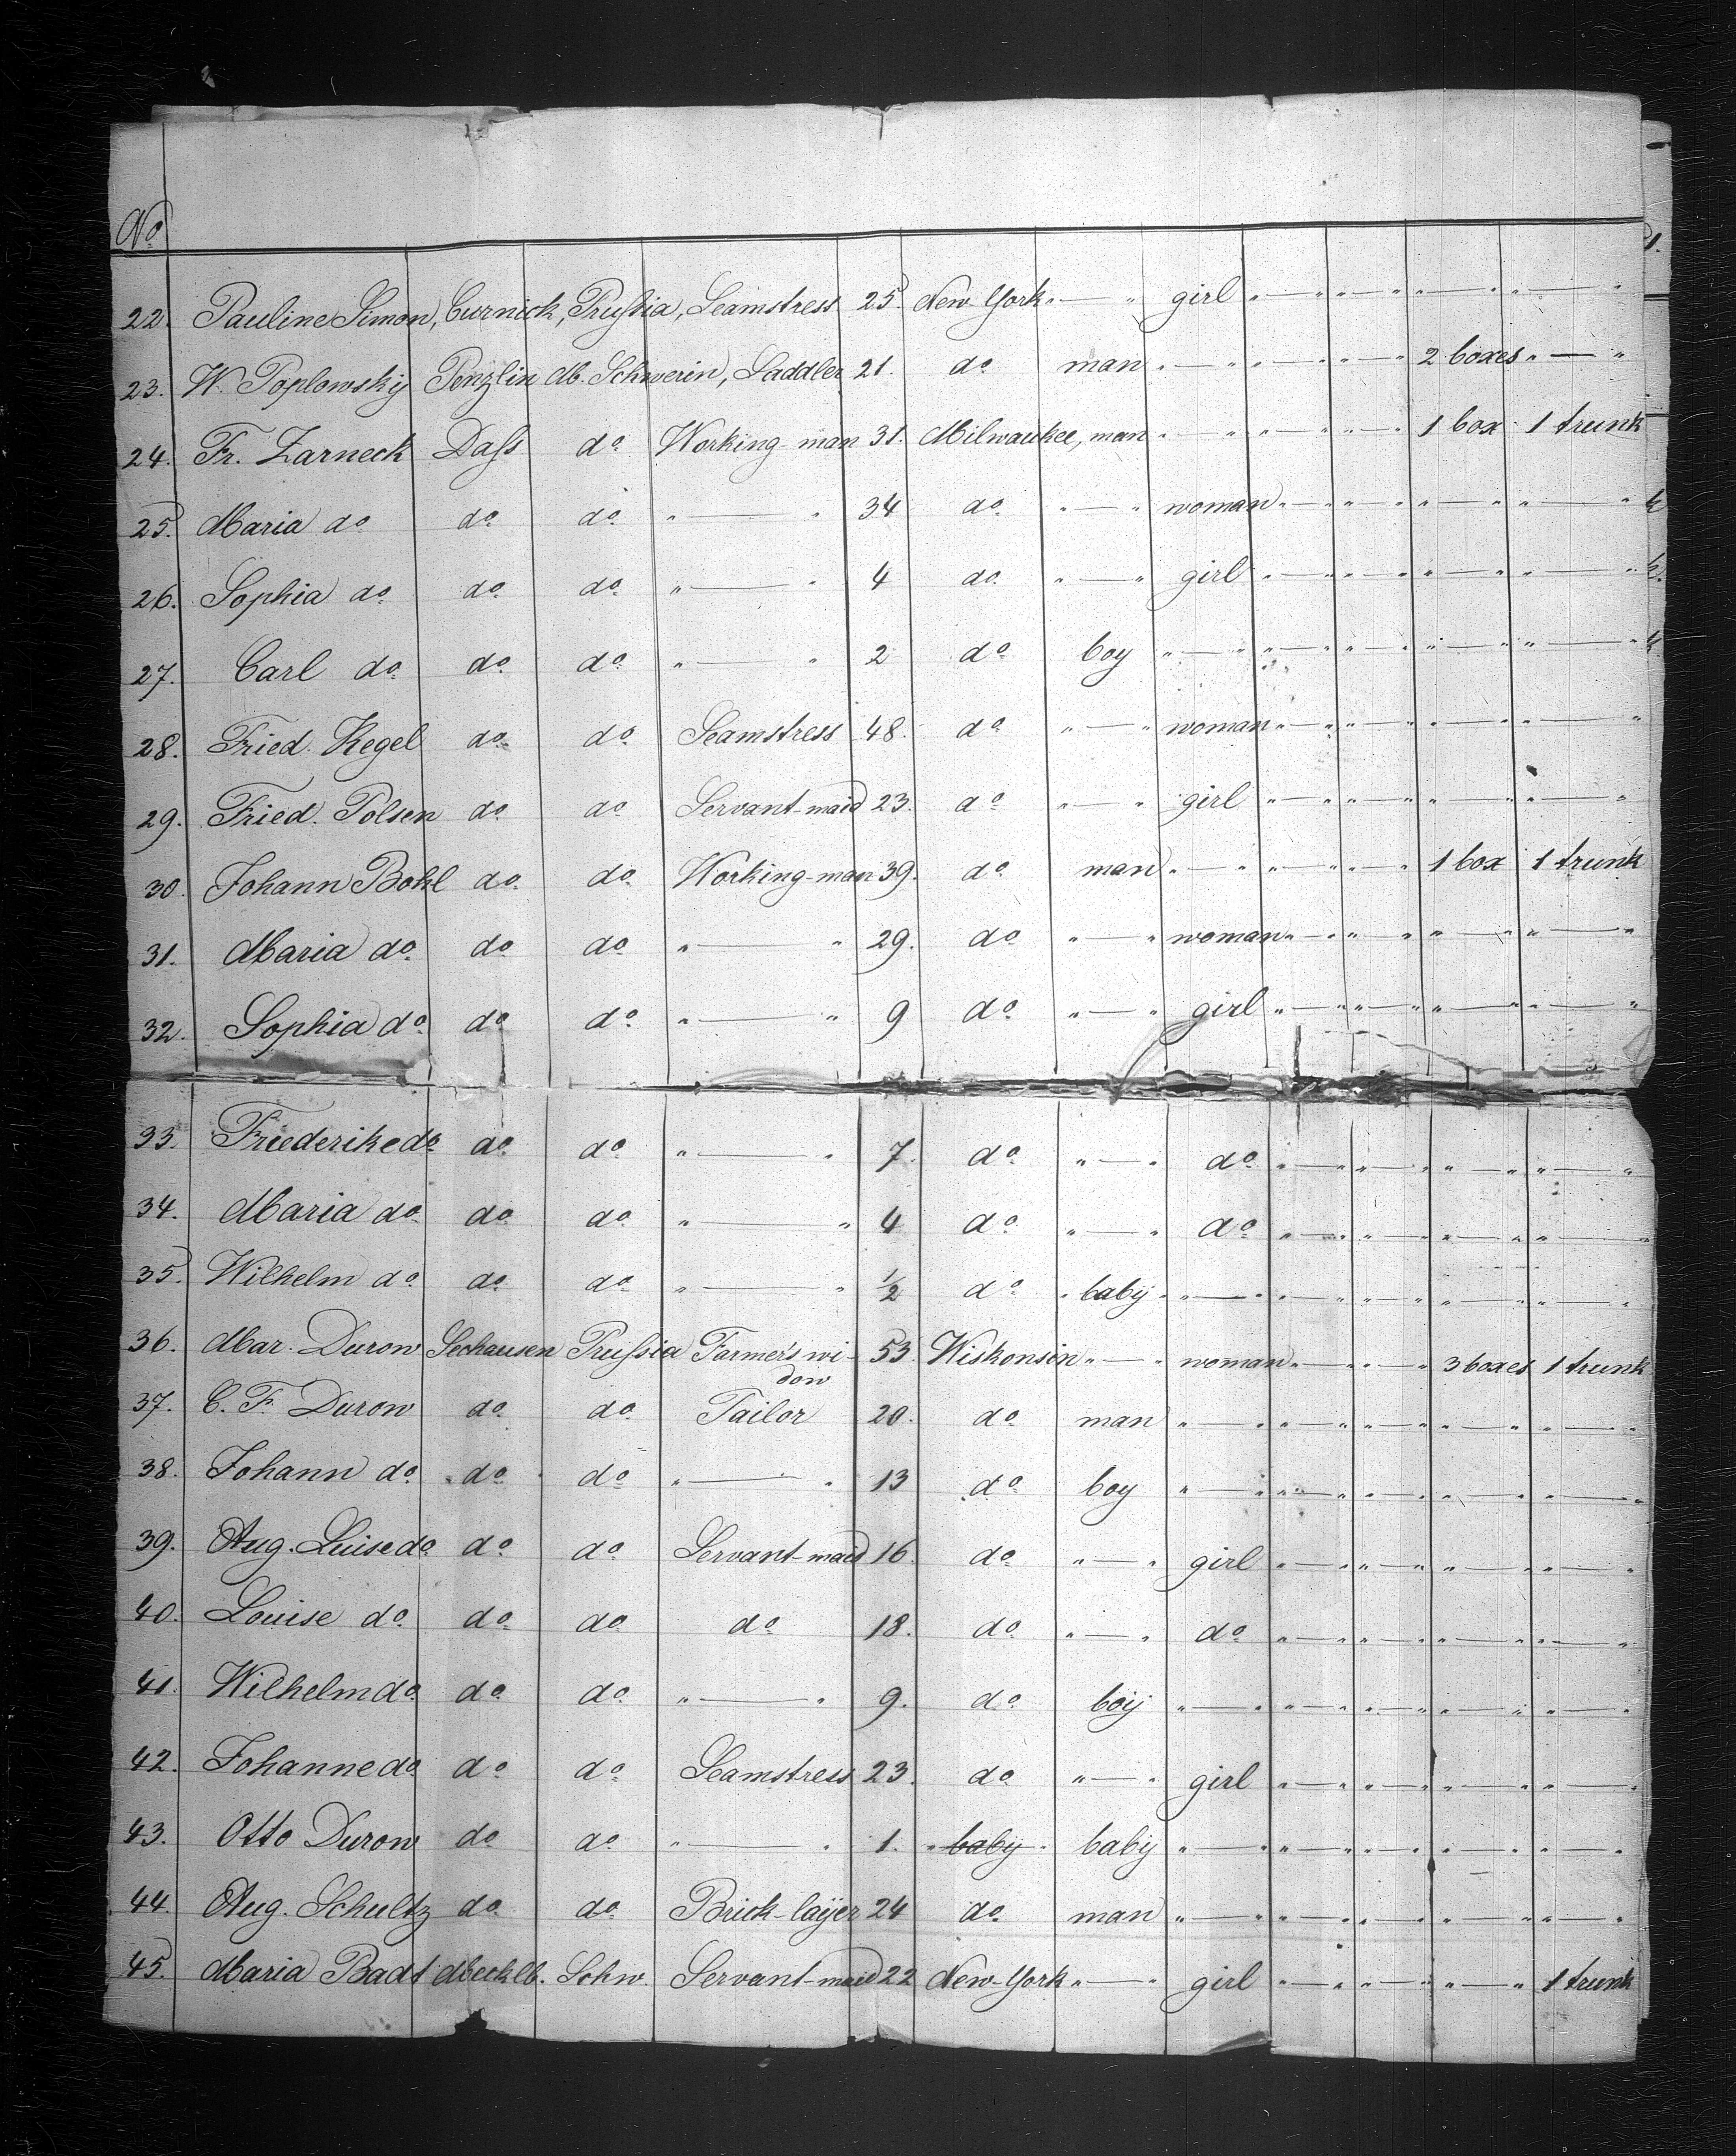 No
22. Pauline Simon, Curnick, Prussia, Seamstress 25. New York " — " girl " — " " — " " — " " — "
23. W. Poplowsky Penzlin M. Schwerin, Saddler 21. do man " — " " — " " — " 2 boxes " — "
24. Fr. Zarneck Dass do Working-man 31. Milwaukee, man " — " " — " " — " 1 box 1 trunk
25. Maria do do do " — " 34 do " — " woman " — " " — " " — " " — "
26. Sophia do do do " — " 4 do " — " girl " — " " — " " — " " — "
27. Carl do do do " — " 2 do boy " — " " — " " — " " — " " — "
28. Fried. Kegel do do Seamstress 48. do " — " woman " — " " — " " — " " — "
29. Fried. Polsen do do Servant-maid 23. do " — " girl " — " " — " " — " " — "
30. Johann Bohl do do Working-man 39. do man " — " " — " " — " 1 box 1 trunk
31. Maria do do do " — " 29. do " — " woman " — " " — " " — " " — "
32. Sophia do do do " — " 9 do " — " girl " — " " — " " — " " — "
33. Friederike do do do " — " 7. do " — " do " — " " — " " — " " — "
34. Maria do do do " — " 4 do " — " do " — " " — " " — " " — "
35. Wilhelm do do do " — " 1/2 do " baby " " — " " — " " — " " — " " — "
36. Mar. Durow Seehausen Prussia Farmer's wi- 53. Wiskonsin " — " woman " — " " — " 3 boxes 1 trunk
dow
37. C. F. Durow do do Tailor 20. do man " — " " — " " — " " — " " — "
38. Johann do do do " — " 13 do boy " — " " — " " — " " — " " — "
39. Aug. Luise do do do Servant-maid 16. do " — " girl " — " " — " " — " " — "
40. Louise do do do do 18. do " — " do " — " " — " " — " " — "
41. Wilhelm do do do " — " 9. do boij " — " " — " " — " " — " " — "
42. Johanne do do do Seamstress 23. do " — " girl " — " " — " " — " " — "
43. Otto Durow do do " — " 1. " baby " baby " — " " — " " — " " — " " — "
44. Aug. Schultz do do Brick-layer 24 do man " — " " — " " — " " — " " — "
45. Maria Badt Mecklb. Schw. Servant-maid 22 New-York " — " girl " — " " — " " — " 1 trunk